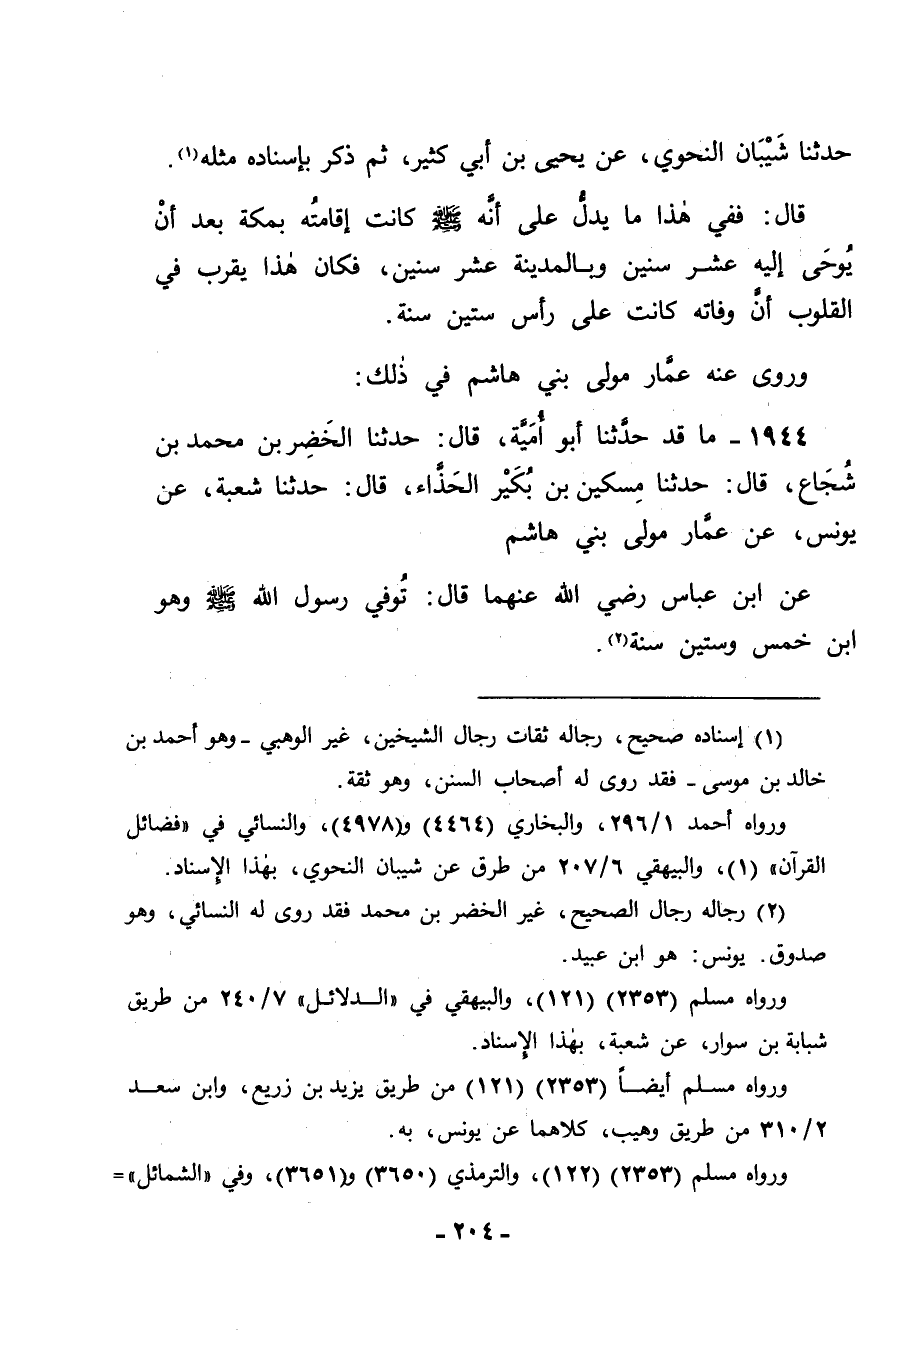 حدثنا شَيْبَان النحوي، عن يحيى بن أبي كثير، ثم ذكر بإسناده مثله(١).
قال: ففي هٰذا ما يدلُّ على أنَّه ﷺ كانت إقامتُه بمكة بعد أنْ
يُوحَى إليه عشر سنين وبالمدينة عشر سنين، فكان هٰذا يقرب في
القلوب أنَّ وفاته كانت على رأس ستين سنة.
وروى عنه عمَّار مولى بني هاشم في ذٰلك:
١٩٤٤ - ما قد حدَّثنا أبو أُمَيَّة، قال: حدثنا الخَضِر بن محمد بن
شُجَاع، قال: حدثنا مِسكين بن بُكَيْر الحَذَّاء، قال: حدثنا شعبة، عن
يونس، عن عمَّار مولى بني هاشم
عن ابن عباس رضي الله عنهما قال: تُوفي رسول الله ﷺ وهو
ابن خمس وستين سنة(٢).
(١) إسناده صحيح، رجاله ثقات رجال الشيخين، غير الوهبي - وهو أحمد بن
خالد بن موسى - فقد روى له أصحاب السنن، وهو ثقة.
ورواه أحمد ٢٩٦/١، والبخاري (٤٤٦٤) و(٤٩٧٨)، والنسائي في «فضائل
القرآن» (١)، والبيهقي ٢٠٧/٦ من طرق عن شيبان النحوي، بهٰذا الإسناد.
(٢) رجاله رجال الصحيح، غير الخضر بن محمد فقد روى له النسائي، وهو
صدوق. يونس: هو ابن عبيد.
ورواه مسلم (٢٣٥٣) (١٢١)، والبيهقي في «الدلائل» ٢٤٠/٧ من طريق
شبابة بن سوار، عن شعبة، بهٰذا الإسناد.
ورواه مسلم أيضاً (٢٣٥٣) (١٢١) من طريق يزيد بن زريع، وابن سعد
٣١٠/٢ من طريق وهيب، كلاهما عن يونس، به.
ورواه مسلم (٢٣٥٣) (١٢٢)، والترمذي (٣٦٥٠) و(٣٦٥١)، وفي «الشمائل»=
- ٢٠٤ -